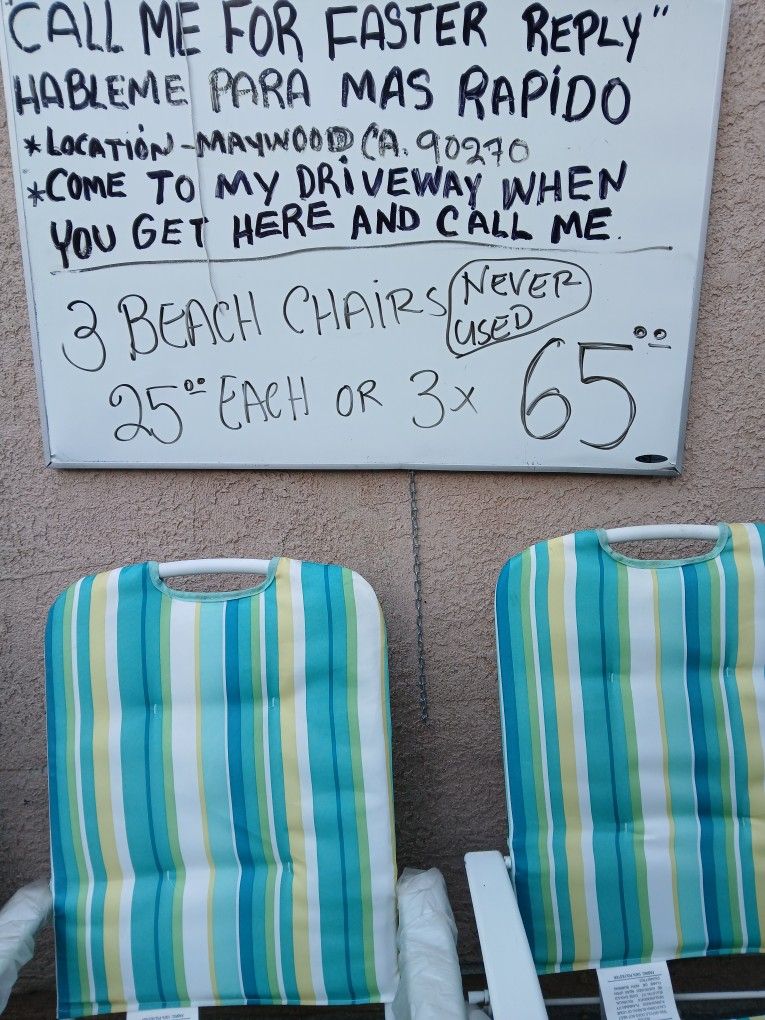 "CALL ME FOR FASTER REPLY"
HABLEME PARA MAS RAPIDO
*LOCATION-MAYWOOD CA. 90270
*COME TO MY DRIVEWAY WHEN
YOU GET HERE AND CALL ME.
3 BEACH CHAIRS NEVER USED
25.00 EACH OR 3x 65.00